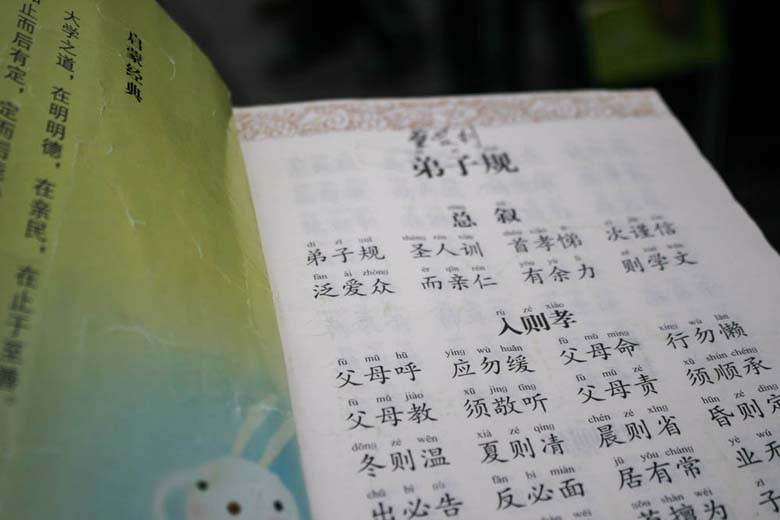 启蒙经典
大学之道，在明明德，在亲民，在止于至善。
止而后有定，定而后
弟子规
总叙
dì zǐ guī shèng rén xùn shǒu xiào tì cì jǐn xìn
弟子规 圣人训 首孝悌 次谨信
fàn ài zhòng ér qīn rén yǒu yú lì zé xué wén
泛爱众 而亲仁 有余力 则学文
rù zé xiào
入则孝
fù mǔ hū yìng wù huǎn fù mǔ mìng xíng wù lǎn
父母呼 应勿缓 父母命 行勿懒
fù mǔ jiào xū jìng tīng fù mǔ zé xū shùn chéng
父母教 须敬听 父母责 须顺承
dōng zé wēn xià zé qìng chén zé xǐng hūn zé dìng
冬则温 夏则凊 晨则省 昏则定
chū bì gào fǎn bì miàn jū yǒu cháng yè wú
出必告 反必面 居有常 业无
gǒu shàn wéi zǐ
苟擅为 子